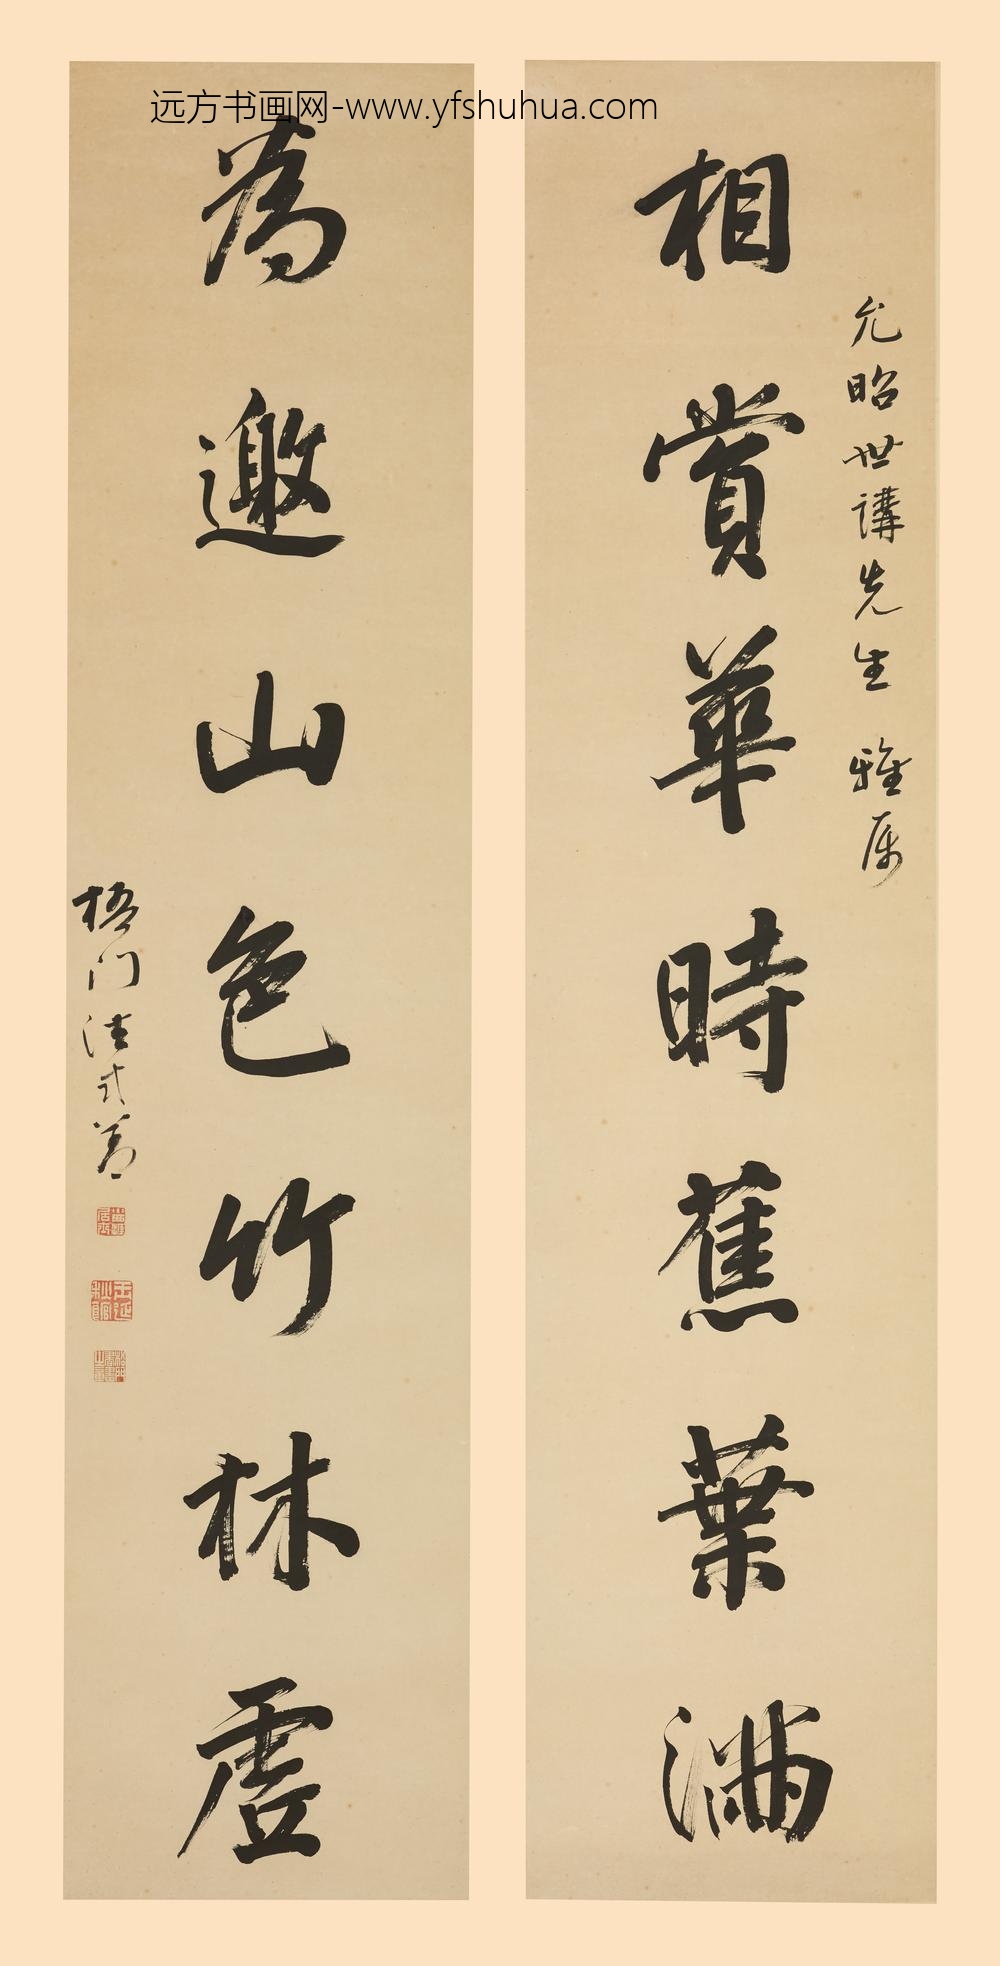 远方书画网-www.yfshuhua.com
允昭世講先生 雅属
相賞華時蕉葉满
為邀山色竹林虛
梧门法式善